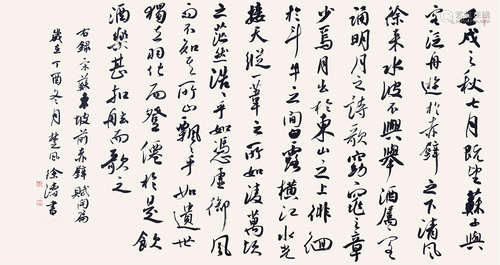 壬戌之秋七月既望蘇子與
客泛舟遊於赤壁之下清風
徐來水波不興舉酒屬客
誦明月之詩歌窈窕之章
少焉月出於東山之上徘徊
於斗牛之間白露橫江水光
接天縱一葦之所如凌萬頃
之茫然浩浩乎如憑虛御風
而不知其所止飄飄乎如遺世
獨立羽化而登僊於是飲
酒樂甚扣舷而歌之
右錄宋蘇東坡前赤壁賦開篇
歲在丁酉冬月楚風徐濤書